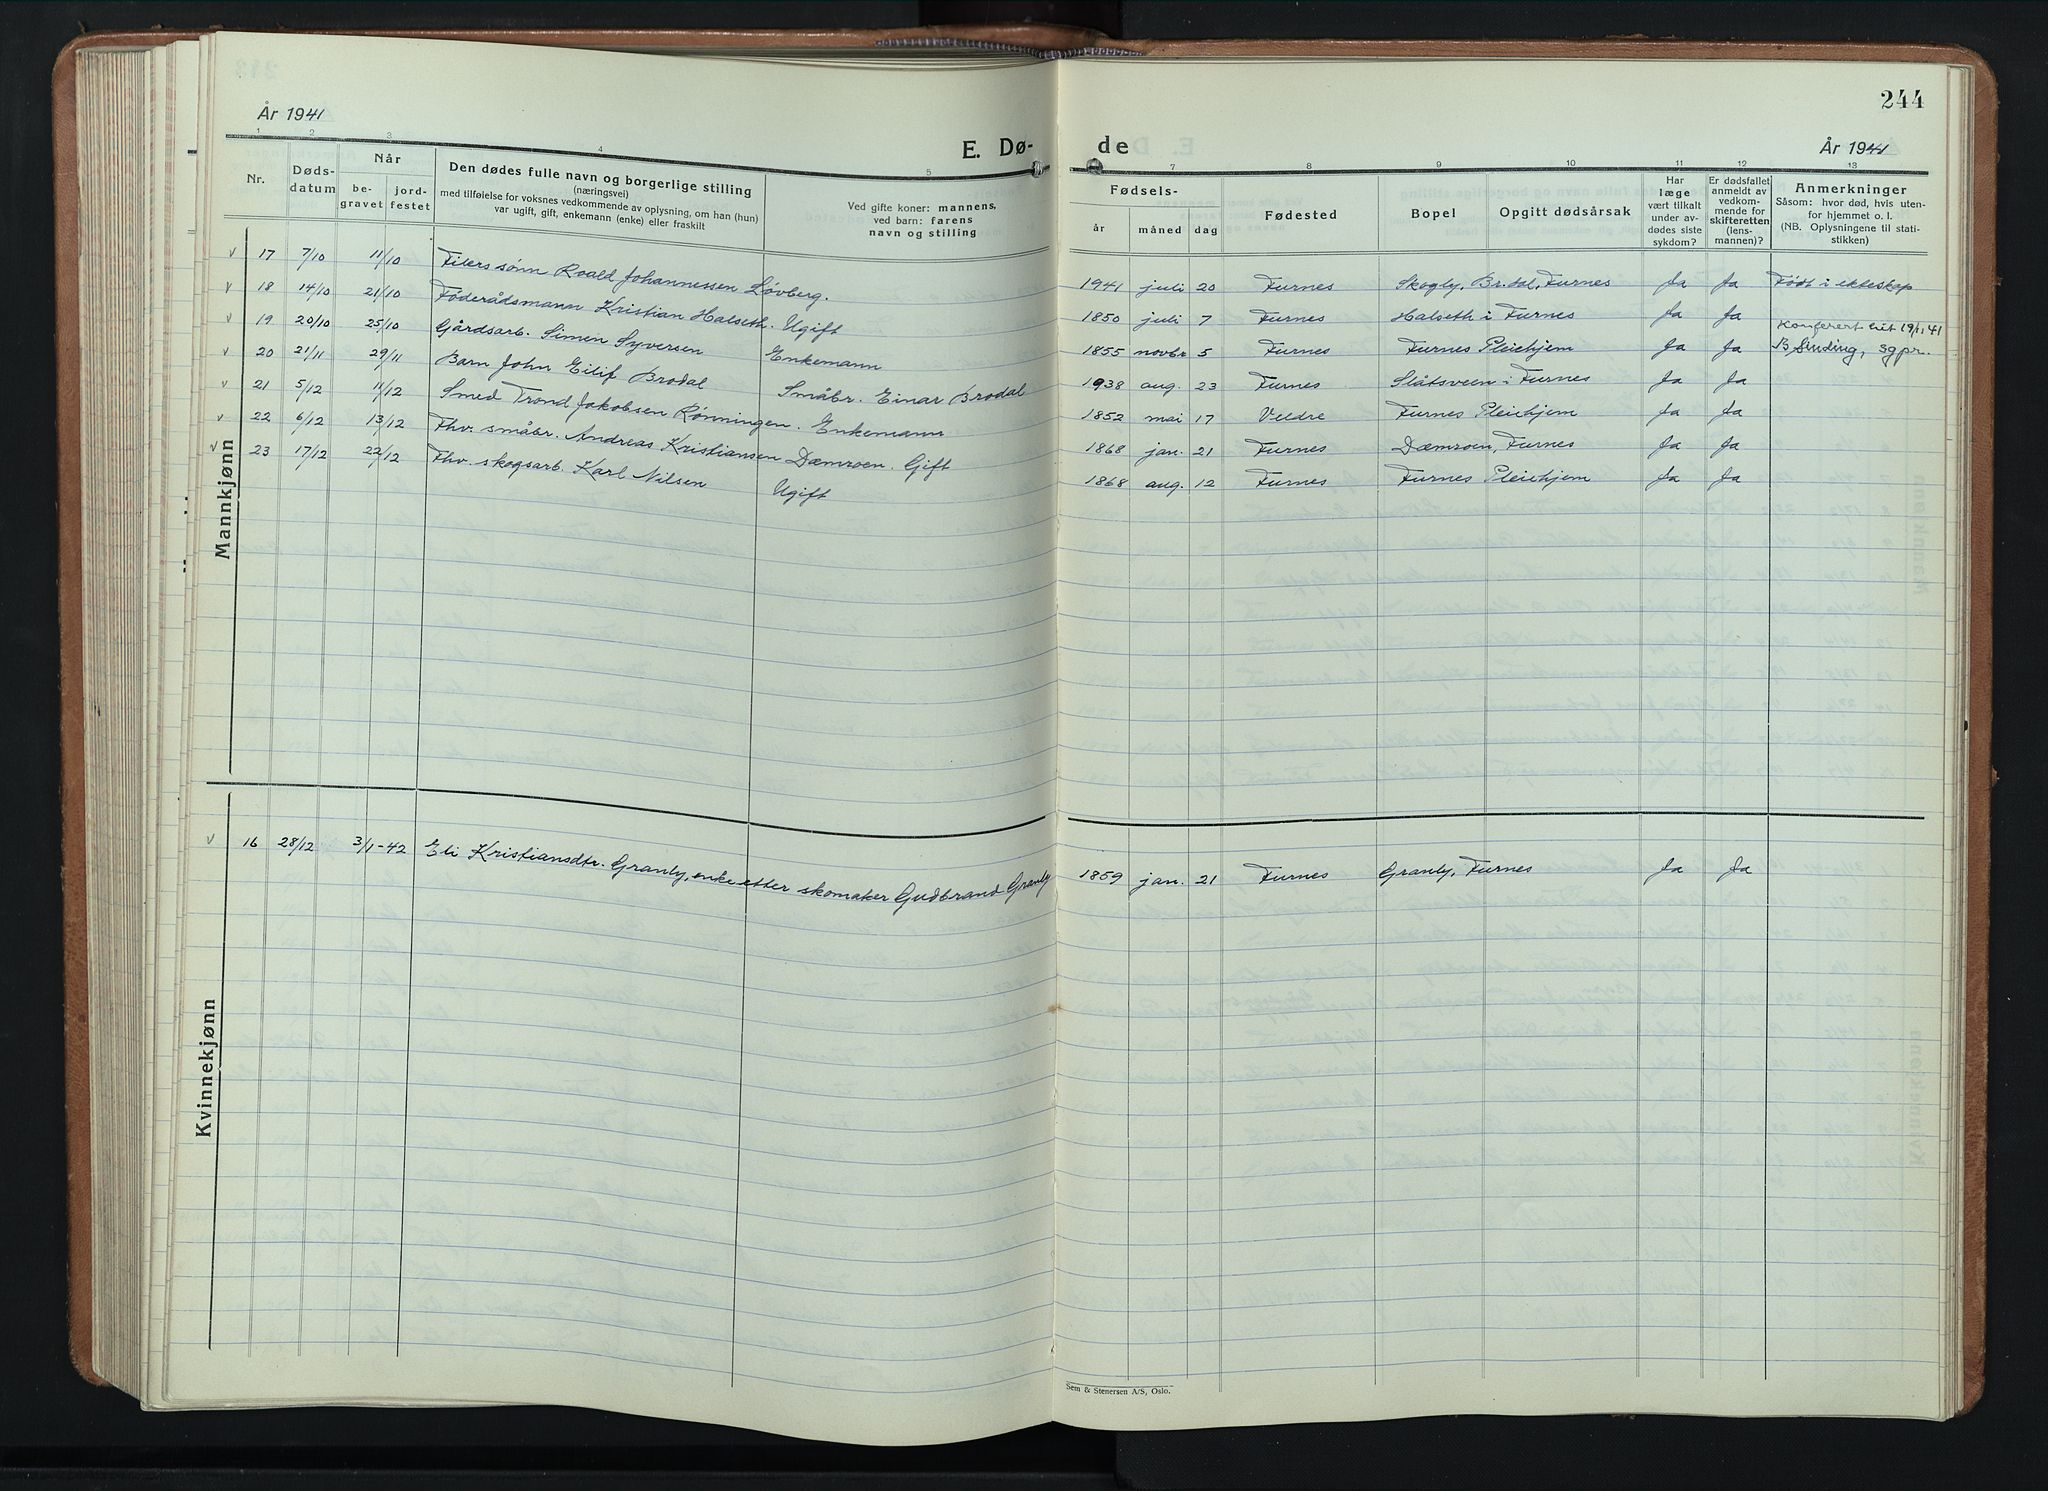 244
År 1941
E. Dø-
de
År 1941
1 2 3 4 5
7 8 9 10 11 12 13
Nr.
Døds-
datum
Når
be-
gravet
jord-
festet
Den dødes fulle navn og borgerlige stilling
(næringsvei)
med tilføielse for voksnes vedkommende av oplysning, om han (hun)
var ugift, gift, enkemann (enke) eller fraskilt
Ved gifte koner: mannens,
ved barn: farens
navn og stilling
Fødsels-
år
måned
dag
Fødested
Bopel
Opgitt dødsårsak
Har
læge
vært tilkalt
under av-
dødes siste
sykdom?
Er dødsfallet
anmeldt av
vedkom-
mende for
skifteretten
(lens-
mannen)?
Anmerkninger
Såsom: hvor død, hvis uten-
for hjemmet o. l.
(NB. Oplysningene til stati-
stikken)
Mannkjønn
v 17 7/10 11/10 Filers sønn Roald Johannessen Løvberg. 1941 juli 20 Furnes Skogly, Br.dal, Furnes Ja Ja Født i ekteskap
v 18 14/10 21/10 Føderådsmann Kristian Halseth. Ugift 1850 juli 7 Furnes Halseth i Furnes Ja Ja
Konferert hit 19/11 41
v 19 20/10 25/10 Gårdsarb. Simen Syversen Enkemann 1855 novbr 5 Furnes Furnes Pleiehjem Ja Ja B Sinding, sgpr.
v 20 21/11 29/11 Barn John Eilif Brodal Småbr. Einar Brodal 1938 aug. 23 Furnes Slåtsveen i Furnes Ja Ja
v 21 5/12 11/12 Smed Trond Jakobsen Rønningen. Enkemann 1852 mai 17 Veldre Furnes Pleiehjem Ja Ja
v 22 6/12 13/12 Fhv. småbr. Andreas Kristiansen Dæmroen. Gift 1868 jan. 21 Furnes Dæmroen, Furnes Ja Ja
v 23 17/12 22/12 Fhv. skogsarb. Karl Nilsen Ugift 1868 aug. 12 Furnes Furnes Pleiehjem Ja Ja
Kvinnekjønn
v 16 28/12 3/1-42 Eli Kristiansdtr. Granly, enke etter skomaker Gudbrand Granly 1859 jan. 21 Furnes Granly, Furnes Ja Ja
Sem & Stenersen A/S, Oslo.